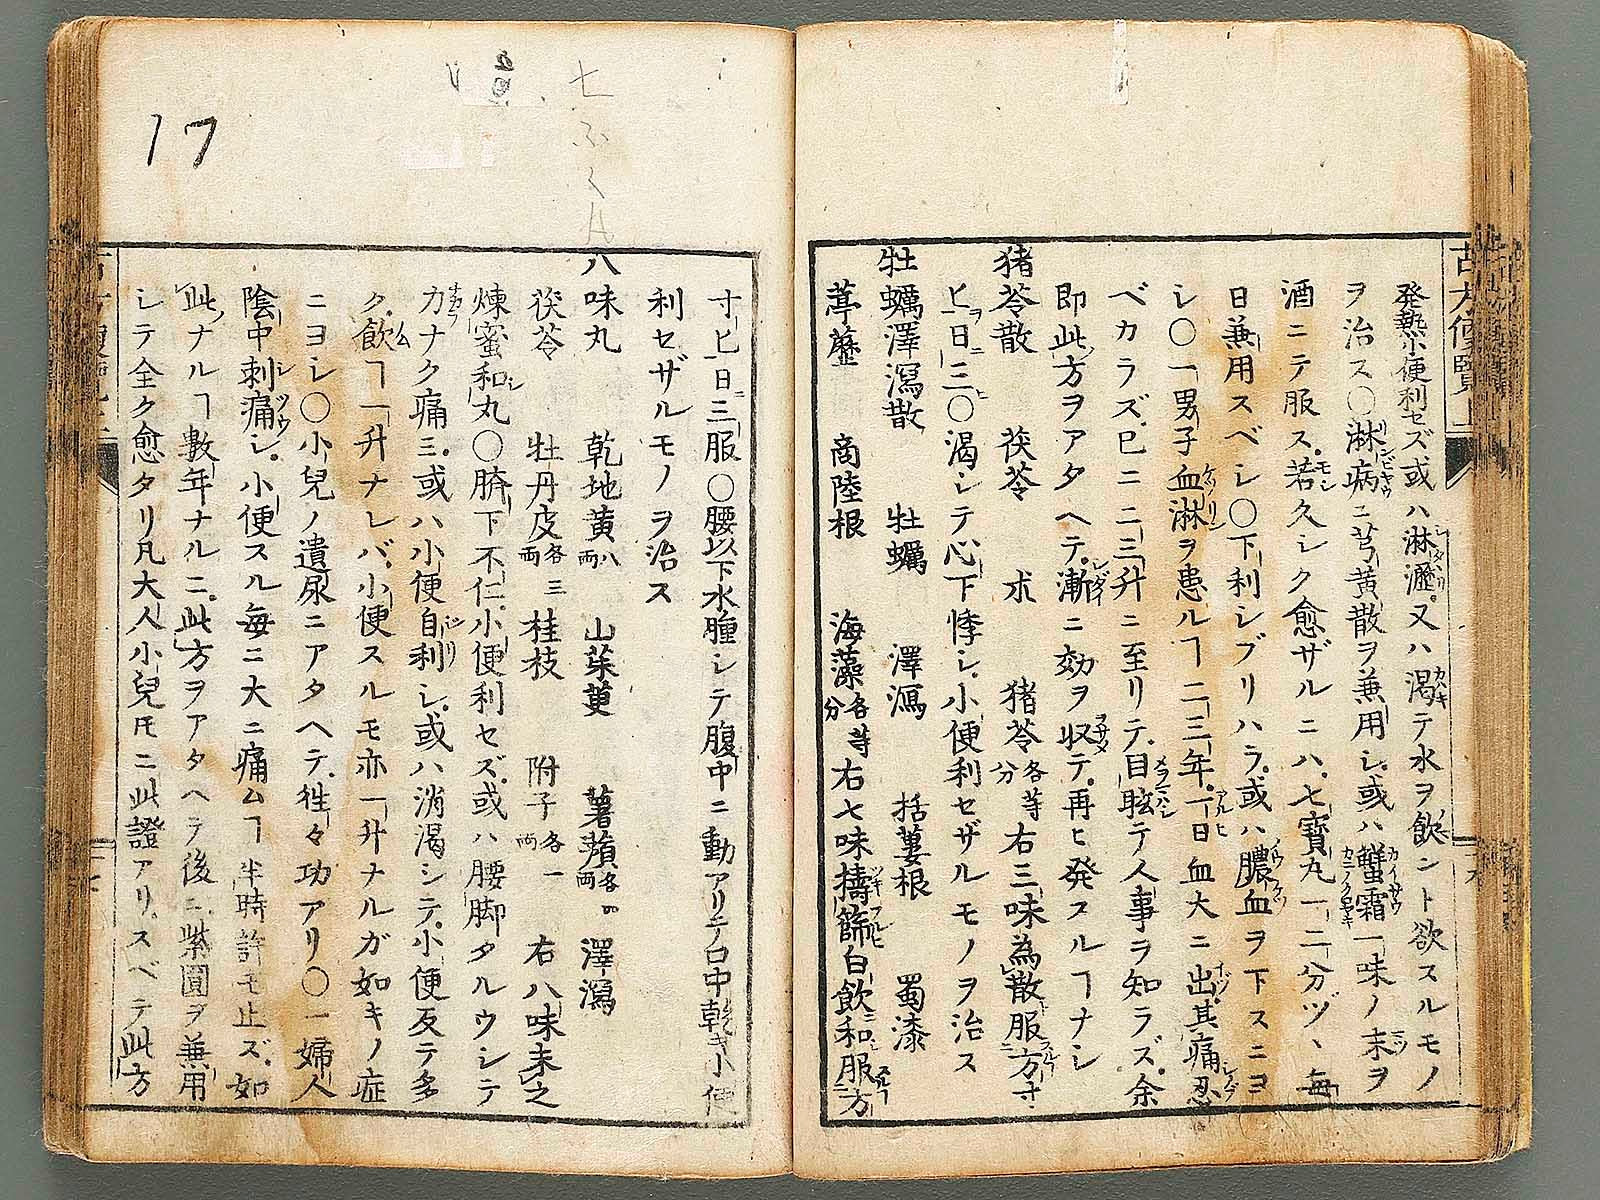 古方便覧上
発熱小便利セズ或ハ淋瀝又ハ渇テ水ヲ飲ント欲スルモノ
ヲ治ス〇淋病ニ芎黄散ヲ兼用シ或ハ蟹霜一味ノ末ヲ
酒ニテ服ス若久シク愈ザルニハ七寶丸一二分ヅヽ毎
日兼用スベシ〇下利シブリハラ或ハ膿血ヲ下スニヨ
シ〇一男子血淋ヲ患ルヿ二三年一日血大ニ出其痛忍
ベカラズ已ニ二三升ニ至リテ目眩テ人事ヲ知ラズ余
即此方ヲアタヘテ漸ニ効ヲ収テ再ヒ発スルヿナシ
猪苓散 茯苓 朮 猪苓各等分 右三味為散服方寸
ヒ日三〇渇シテ心下悸シ小便利セザルモノヲ治ス
牡蠣澤瀉散 牡蠣 澤瀉 括蔞根 蜀漆
葶藶 商陸根 海藻各等分 右七味擣篩白飲和服方
寸ヒ日三服〇腰以下水腫シテ腹中ニ動アリテ口中乾キ小便
利セザルモノヲ治ス
八味丸 乾地黄八両 山茱萸 薯蕷各四両 澤瀉
茯苓 牡丹皮各三両 桂枝 附子各一両 右八味末之
煉蜜和丸〇臍下不仁小便利セズ或ハ腰脚タルウシテ
カナク痛ミ或ハ小便自利シ或ハ消渇シテ小便反テ多
ク飲ヿ一升ナレバ小便スルモ亦一升ナルガ如キノ症
ニヨシ〇小兒ノ遺尿ニアタヘテ徃々功アリ〇一婦人
陰中刺痛シ小便スル毎ニ大ニ痛ムヿ半時許モ止ズ如
此ナルヿ數年ナルニ此方ヲアタヘテ後ニ紫圓ヲ兼用
シテ全ク愈タリ凡大人小兒𪜈ニ此證アリスベテ此方
17
七ふく八